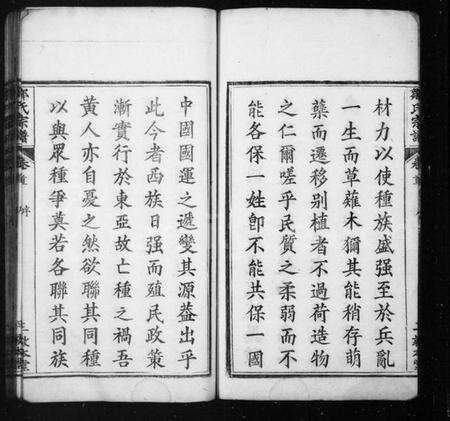 材力以使種族盛强至於兵亂
一生而草薙木獮其能稍存萌
蘖而遷移别植者不過荷造物
之仁爾嗟乎民質之柔弱而不
能各保一姓卽不能共保一國
鄭氏宗譜
卷首
中國國運之遞變其源蓋出乎
此今者西族日强而殖民政策
漸實行於東亞故亡種之禍吾
黄人亦自憂之然欲聯其同種
以與眾種爭奠若各聯其同族